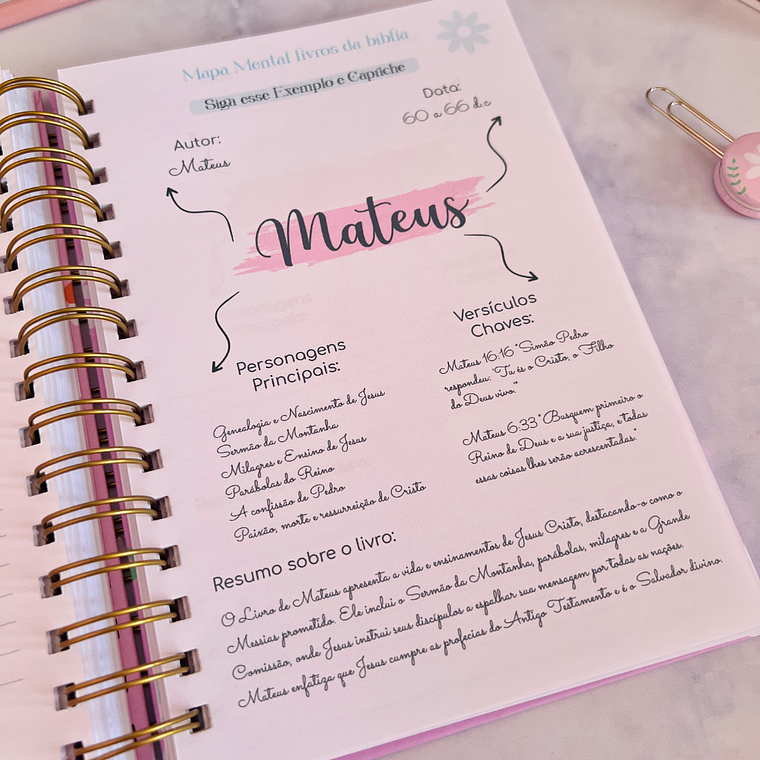 Mapa Mental livros da bíblia
Siga esse Exemplo e Capriche
Data:
60 a 66 d.c
Autor:
Mateus
Mateus
Personagens
Principais:
Genealogia e Nascimento de Jesus
Sermão da Montanha
Milagres e Ensino de Jesus
Parábolas do Reino
A confissão de Pedro
Paixão, morte e ressurreição de Cristo
Versículos
Chaves:
Mateus 16:16 "Simão Pedro
respondeu: "Tu és o Cristo, o Filho
do Deus vivo."
Mateus 6:33 "Busquem primeiro o
Reino de Deus e a sua justiça, e todas
essas coisas lhes serão acrescentadas."
Resumo sobre o livro:
O Livro de Mateus apresenta a vida e ensinamentos de Jesus Cristo, destacando-o como o
Messias prometido. Ele inclui o Sermão da Montanha, parábolas, milagres e a Grande
Comissão, onde Jesus instrui seus discípulos a espalhar sua mensagem por todas as nações.
Mateus enfatiza que Jesus cumpre as profecias do Antigo Testamento e é o Salvador divino.